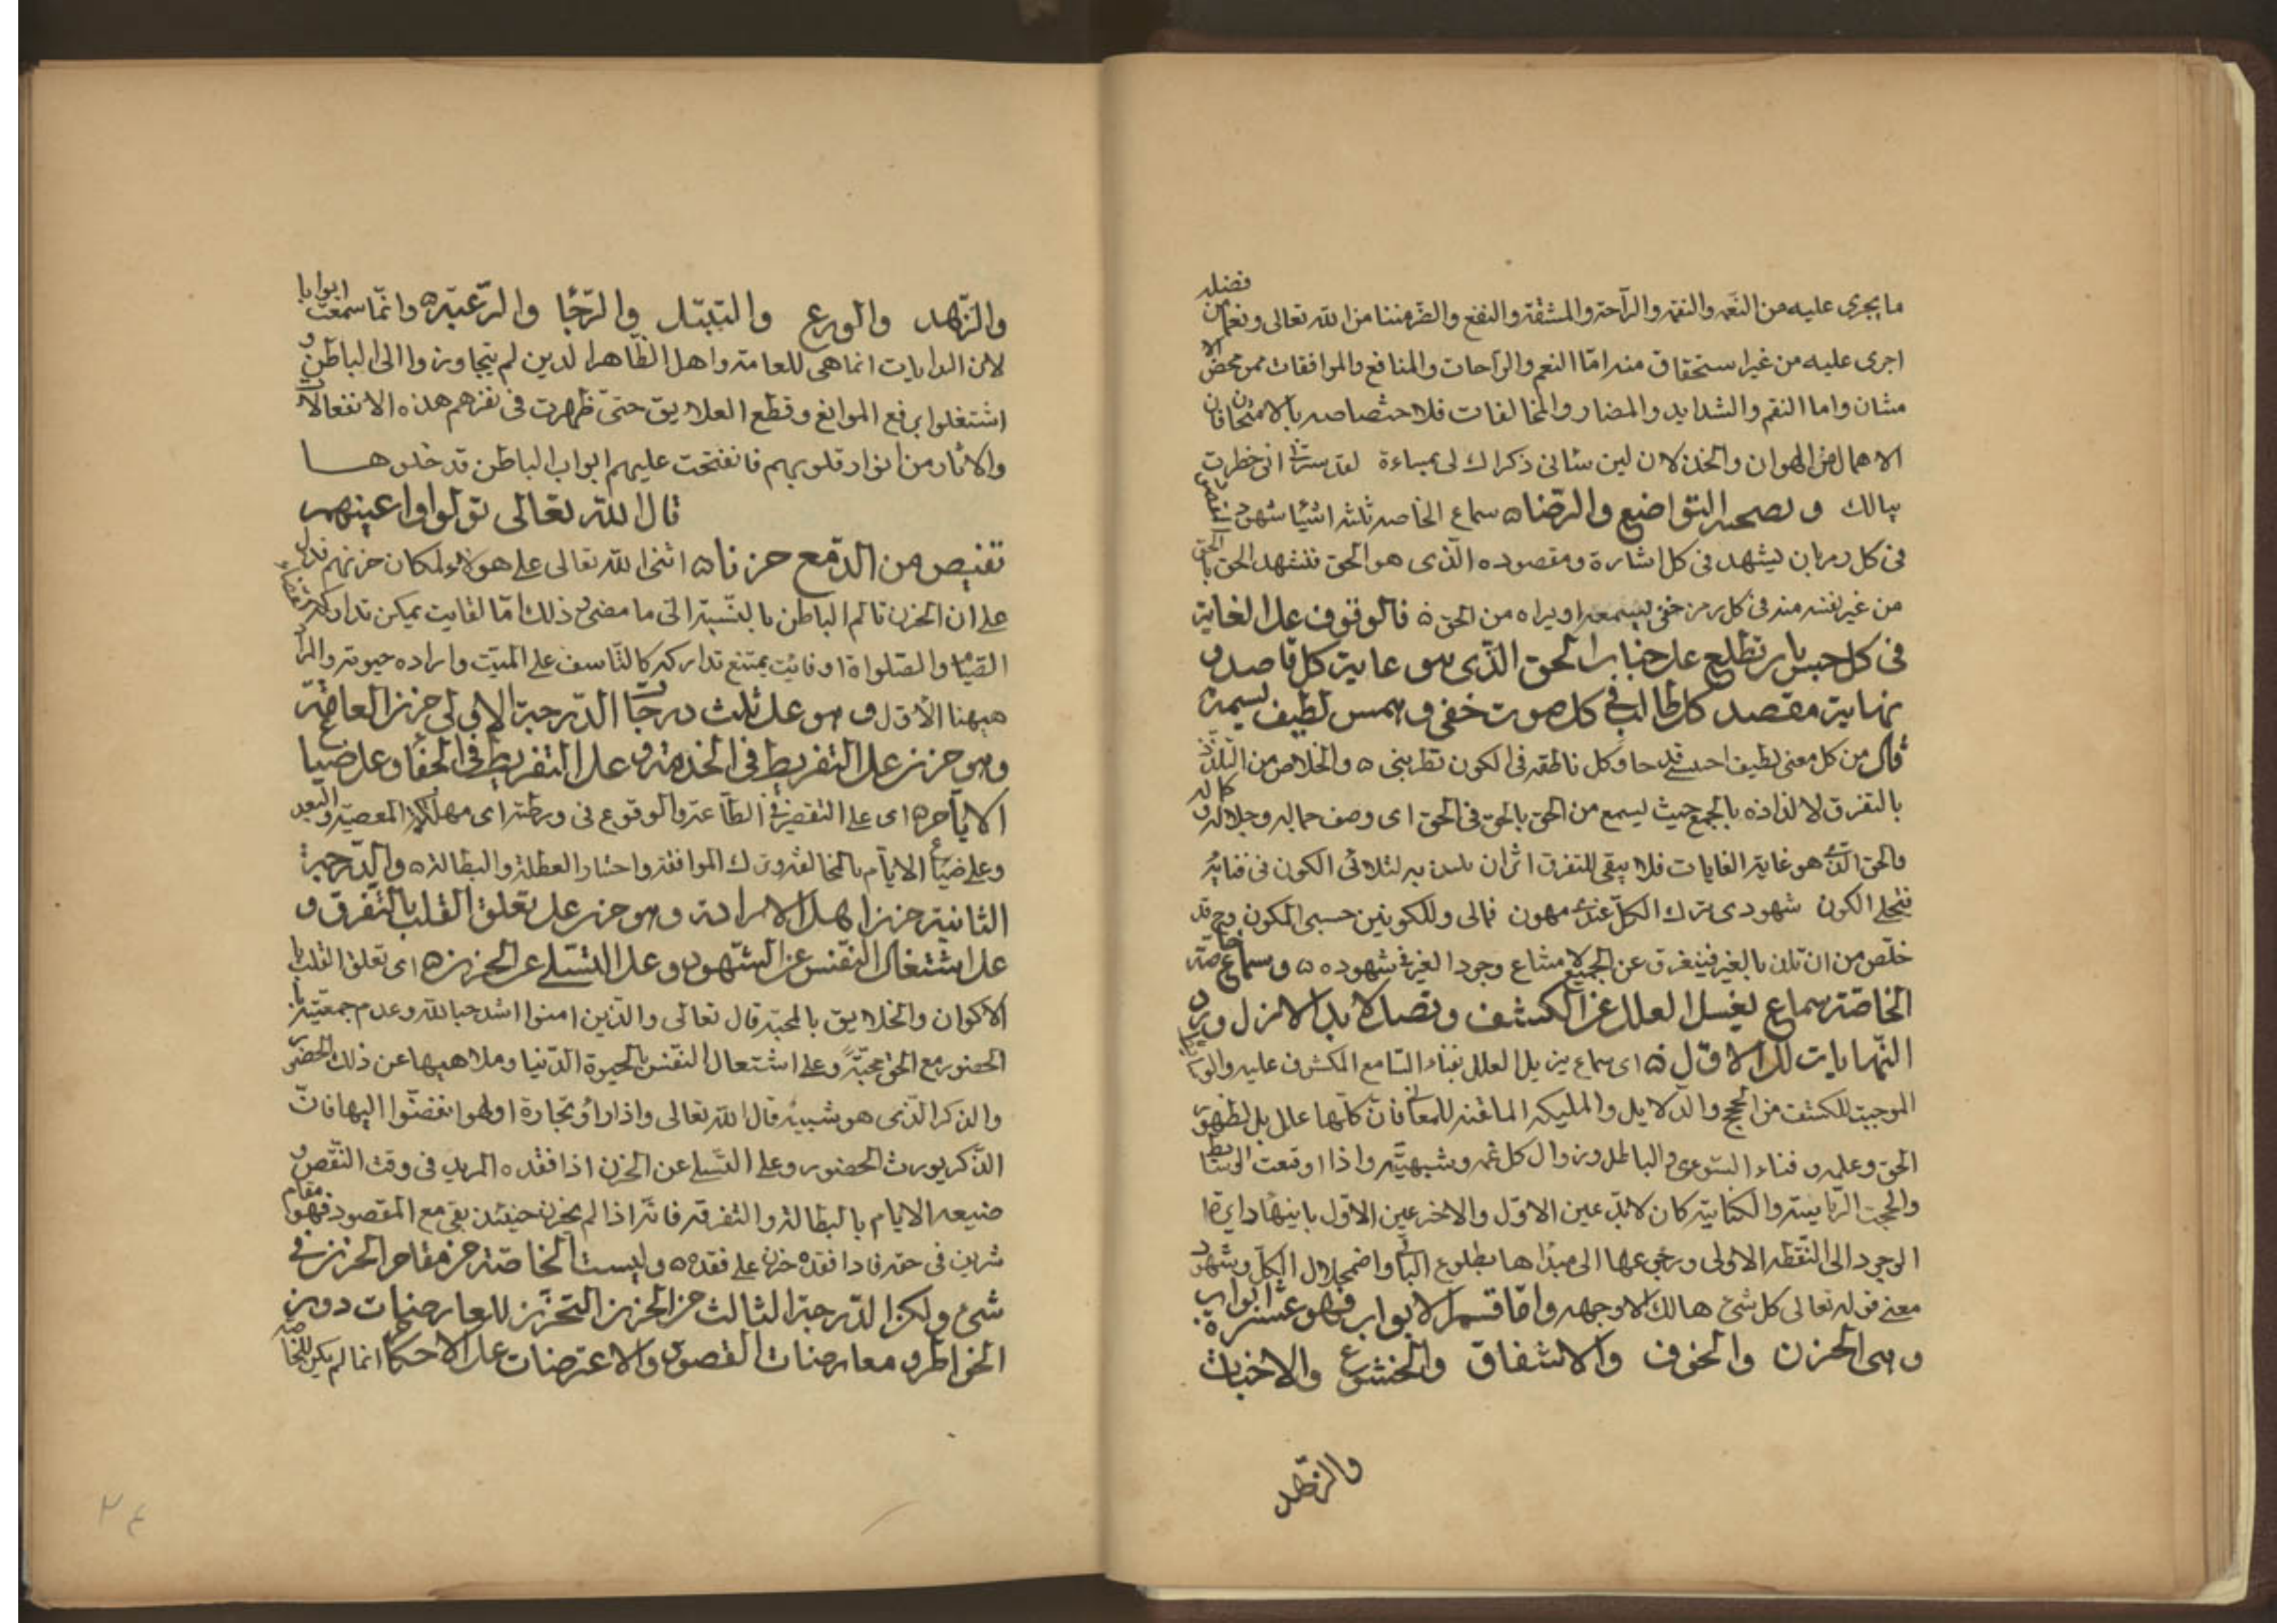 ما يجري عليه من النعم والنقم والراحة والمشقة والنفع والضر مننا من الله تعالى ونعما من فضله
اجرى عليه من غير استحقاق منه اما النعم والراحات والمنافع والموافقات فمن محض الا
متنان واما النقم والشدايد والمضار والمخالفات فلاختصاصه بالامتحان فان
الاهمال من الهوان والخذلان لين سائنى ذكراك لى بمساءة لقد سرنى انى خطرت
ببالك وبصحبه التواضع والرضا ۵ سماع الخاصه ثلثه اشيا شهود المقصود
فى كل رمز بان يشهد فى كل اشارة ومقصوده الذى هو الحق فتشهد الحق بالحق
من غير نفسه منه فى كل رمز خفى يسمعه او يراه من الحق ۵ فالوقوف على الغاية
فى كل حس بان تطلع على جناب الحق الذى هو غاية كل قاصد و
نهاية مقصد كل طالب فى كل صوت خفى وهمس لطيف يسمعه
قال من كل معنى لطيف احتسى قدحا وكل ناطقة فى الكون تطربنى ۵ والخلاص من التلذذ
بالتفرق لالتذاذه بالجمع حيث يسمع من الحق بالحق فى الحق اى وصف جماله وجلاله وكماله
والحق الذى هو غاية الغايات فلا يبقى للتفرق اثران يلتذ به لتلاشى الكون فى فنائه
فتجلى الكون شهودى بترك الكل عندى مهون فمالى وللكونين حسبى المكون وح قد
خلص من ان تلذذ بالغير فيتفرق عن الجميع لامتناع وجود الغير فى شهوده ۵ وسماع خاصة
الخاصة سماع يغسل العلل عن الكشف ويصل الابد الى الازل ويرد
النهايات الى الاول ۵ اى سماع يزيل العلل بفناء السامع المكشوف عليه والوسايط
الموجبة للكشف من الحجج والدلايل والمليكة الملقنه للمعانى فان كلها علل بل لظهور
الحق وعلمه وفناء السوى والباطل وزوال كل غمه وشبهة واذا ارتفعت الوسايط
والحجب الربانية والكتابية كان لابد عين الاول والاخر عين الاول بانتهاء دايرة
الوجود الى النقطه الاولى ورجوعها الى مبداها بطلوع البا واضمحلال الكل وشهود
معنى قوله تعالى كل شئ هالك الا وجهه واما قسم الابواب فهو عشرة ابواب
وهى الحزن والخوف والاشفاق والخشوع والاخبات
والزهد
والزهد والورع والتبتل والرجا والرغبة ۵ وانما سمعت ابوابا
لان البدايات انما هى للعامة واهل الظاهر الذين لم يتجاوزوا الى الباطن و
اشتغلوا برفع الموانع وقطع العلايق حتى ظهرت فى نفزهم هذه الانفعالات
والاثار من انوار قلوبهم فانفتحت عليهم ابواب الباطن قد خلوها
قال الله تعالى تولوا واعينهم
تفيض من الدمع حزنا ۵ اثنى الله تعالى على هولاء لمكان حزنهم فدل
على ان الحزن تالم الباطن بالنسبة الى ما مضى وذلك اما لفايت يمكن تداركه كقضاء
الصيام والصلواة او فائت يمتنع تداركه كالتاسف على الميت واراده حيوته والمراد
هيهنا الاول وهو على ثلث درجات الدرجة الاولى حزن العامة
وهو حزن على التفريط فى الخدمة وعلى التفريط فى الجفا وعلى ضياع
الايام ۵ اى على التقصير فى الطاعة والوقوع فى ورطته اى مهلكة المعصية والبعد
وعلى ضياع الايام بالمخالفة وترك الموافقة واختيار العطلة والبطالة ۵ والدرجة
الثانية حزن اهل الارادة وهو حزن على تعلق القلب بالتفرق و
على اشتغال النفس عن الشهود وعلى التسلى عن الحزن ۵ اى تعلق القلب با
لاكوان والخلايق بالمحبة قال تعالى والذين امنوا اشد حبا لله وعدم جمعيته با
لحضور مع الحق محبة وعلى اشتغال النفس بالحيوة الدنيا وملاهيها عن ذلك الحضور
والذكر الذى هو شبيه قال الله تعالى واذا راوا تجارة او لهوا انفضوا اليها فان
الذكر يورث الحضور وعلى التسلى عن الحزن اذا فقده المريد فى وقت النقص و
ضيعه الايام بالبطالة والتفرقة فانه اذا لم يحزن حينئذ بقى مع المقصود فهو مقام
شرين فى حقه فاذا فقده حزن على فقده ۵ وليست الخاصة من مقام الحزن فى
شئ ولكن الدرجة الثالثة من الحزن التحزن للعارضات دون
الخواطر ومعارضات القصود والاعتراضات على الاحكام انما لم يكن للخاصة
۲٤